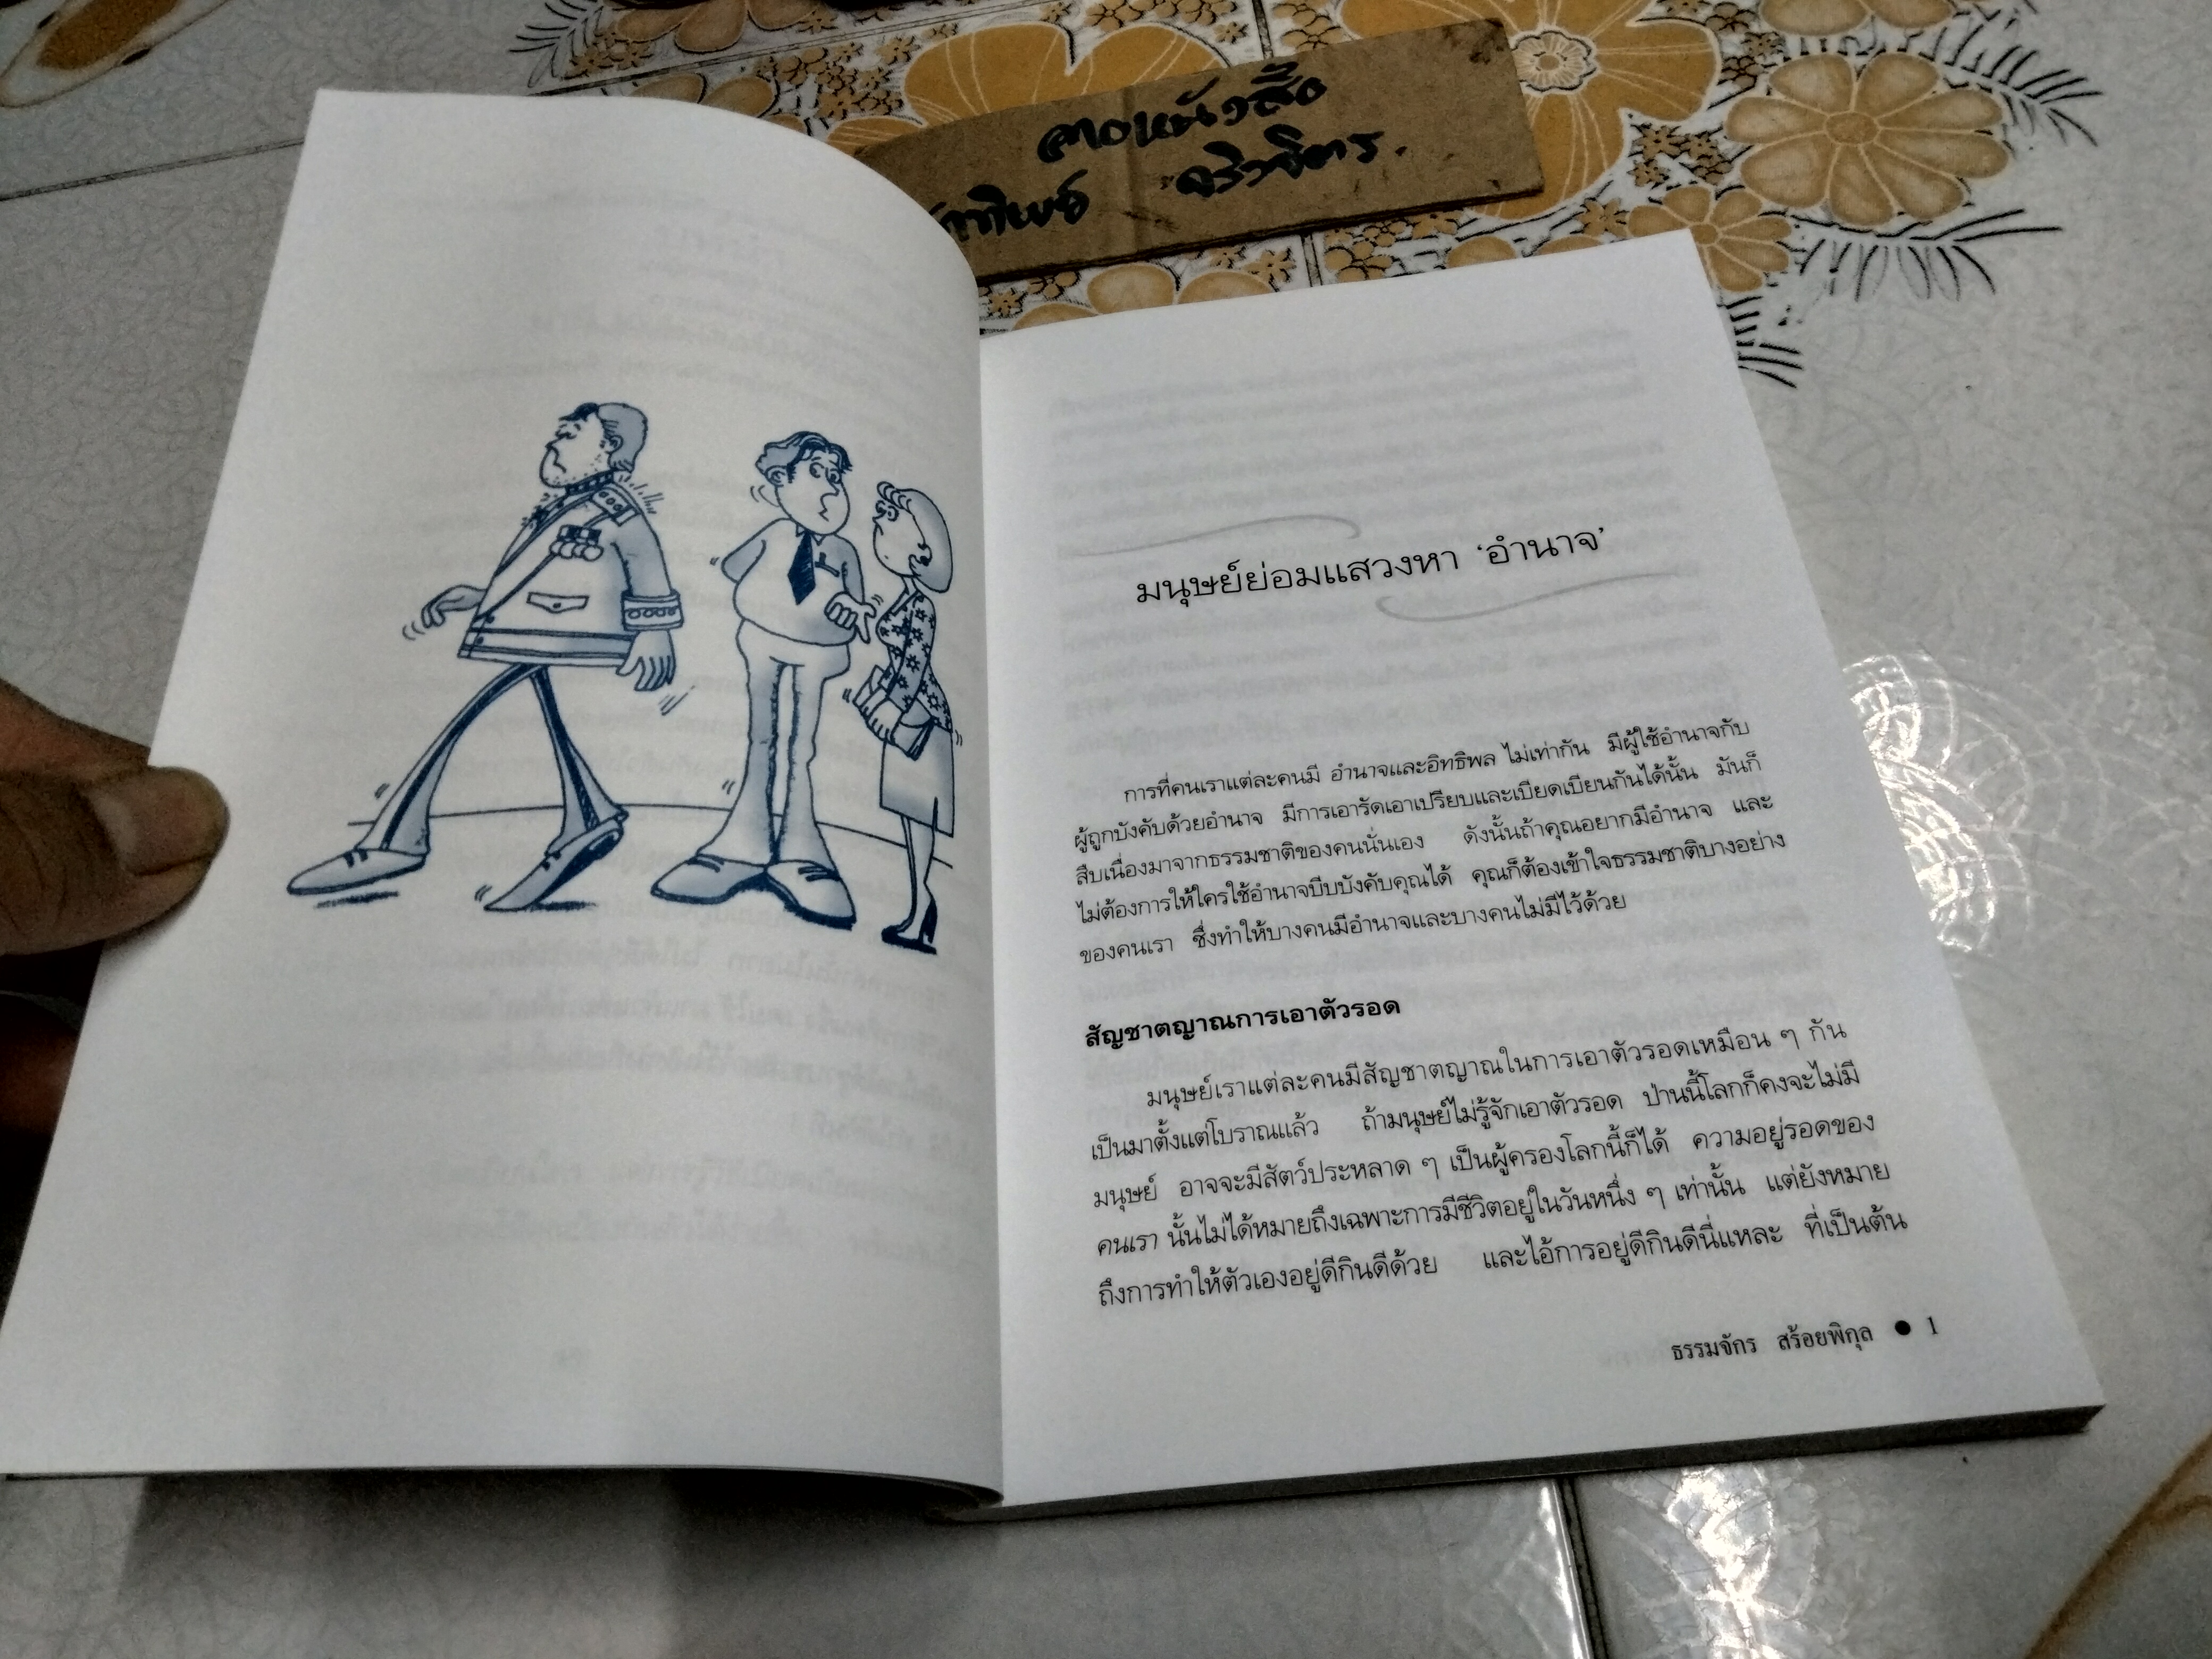 มนุษย์ย่อมแสวงหา ‘อำนาจ’
การที่คนเราแต่ละคนมี อำนาจและอิทธิพล ไม่เท่ากัน มีผู้ใช้อำนาจกับ
ผู้ถูกบังคับด้วยอำนาจ มีการเอารัดเอาเปรียบและเบียดเบียนกันได้นั้น มันก็
สืบเนื่องมาจากธรรมชาติของคนนั่นเอง ดังนั้นถ้าคุณอยากมีอำนาจ และ
ไม่ต้องการให้ใครใช้อำนาจบีบบังคับคุณได้ คุณก็ต้องเข้าใจธรรมชาติบางอย่าง
ของคนเรา ซึ่งทำให้บางคนมีอำนาจและบางคนไม่มีไว้ด้วย
สัญชาตญาณการเอาตัวรอด
มนุษย์เราแต่ละคนมีสัญชาตญาณในการเอาตัวรอดเหมือน ๆ กัน
เป็นมาตั้งแต่โบราณแล้ว ถ้ามนุษย์ไม่รู้จักเอาตัวรอด ป่านนี้โลกก็คงจะไม่มี
มนุษย์ อาจจะมีสัตว์ประหลาด ๆ เป็นผู้ครองโลกนี้ก็ได้ ความอยู่รอดของ
คนเรา นั้นไม่ได้หมายถึงเฉพาะการมีชีวิตอยู่ในวันหนึ่ง ๆ เท่านั้น แต่ยังหมาย
ถึงการทำให้ตัวเองอยู่ดีกินดีด้วย และไอ้การอยู่ดีกินดีนี่แหละ ที่เป็นต้น
ธรรมจักร สร้อยพิกุล ● 1